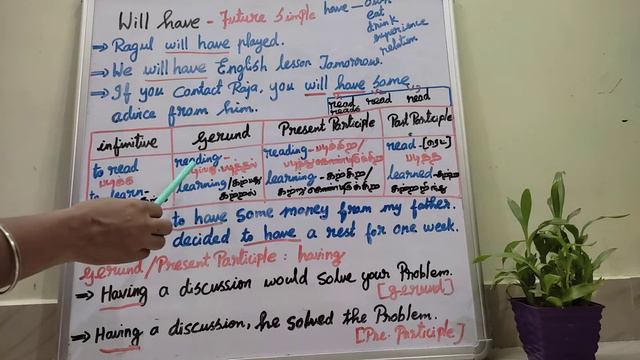 Will have - Future Simple have - own
eat
drink
experience
relation
⇒ Ragul will have played.
⇒ We will have English lesson Tomorrow.
⇒ If you Contact Raja, you will have some
advice from him.
read read read
reads
infinitive Gerund Present Participle Past Participle
to read reading - reading - read -
படிக்க
to learn - learning / learning - learned -
to have some money from my father.
decided to have a rest for one week.
Gerund / Present Participle : having
→ Having a discussion would solve your Problem.
[Gerund]
⇒ Having a discussion, he solved the Problem.
[Pre. Participle]